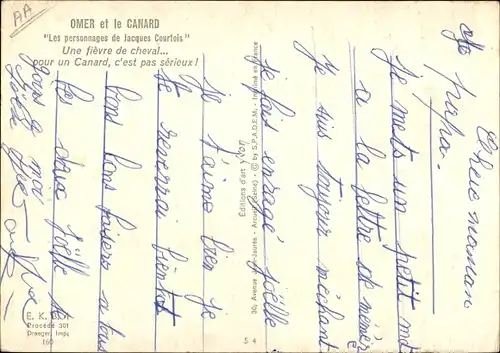 AA
OMER et le CANARD
"Les personnages de Jacques Courtois"
Une fièvre de cheval...
pour un Canard, c'est pas sérieux !
Chere maman
papa.
Je mets un petit mot
a la lettre de mémère
Je suis toujour méchant
je fais enragé Joëlle
je t'aime bien je
te reverrai bientot
bons bons baisers a tous
les deux Joëlle
E. K. B.
Procédé 301
Draeger, Imp.
160
Editions d'art YVON
30, Avenue Jean-Jaurès - Arcueil (Seine) - © by S.P.A.D.E.M. - Imprimé en France
5 4